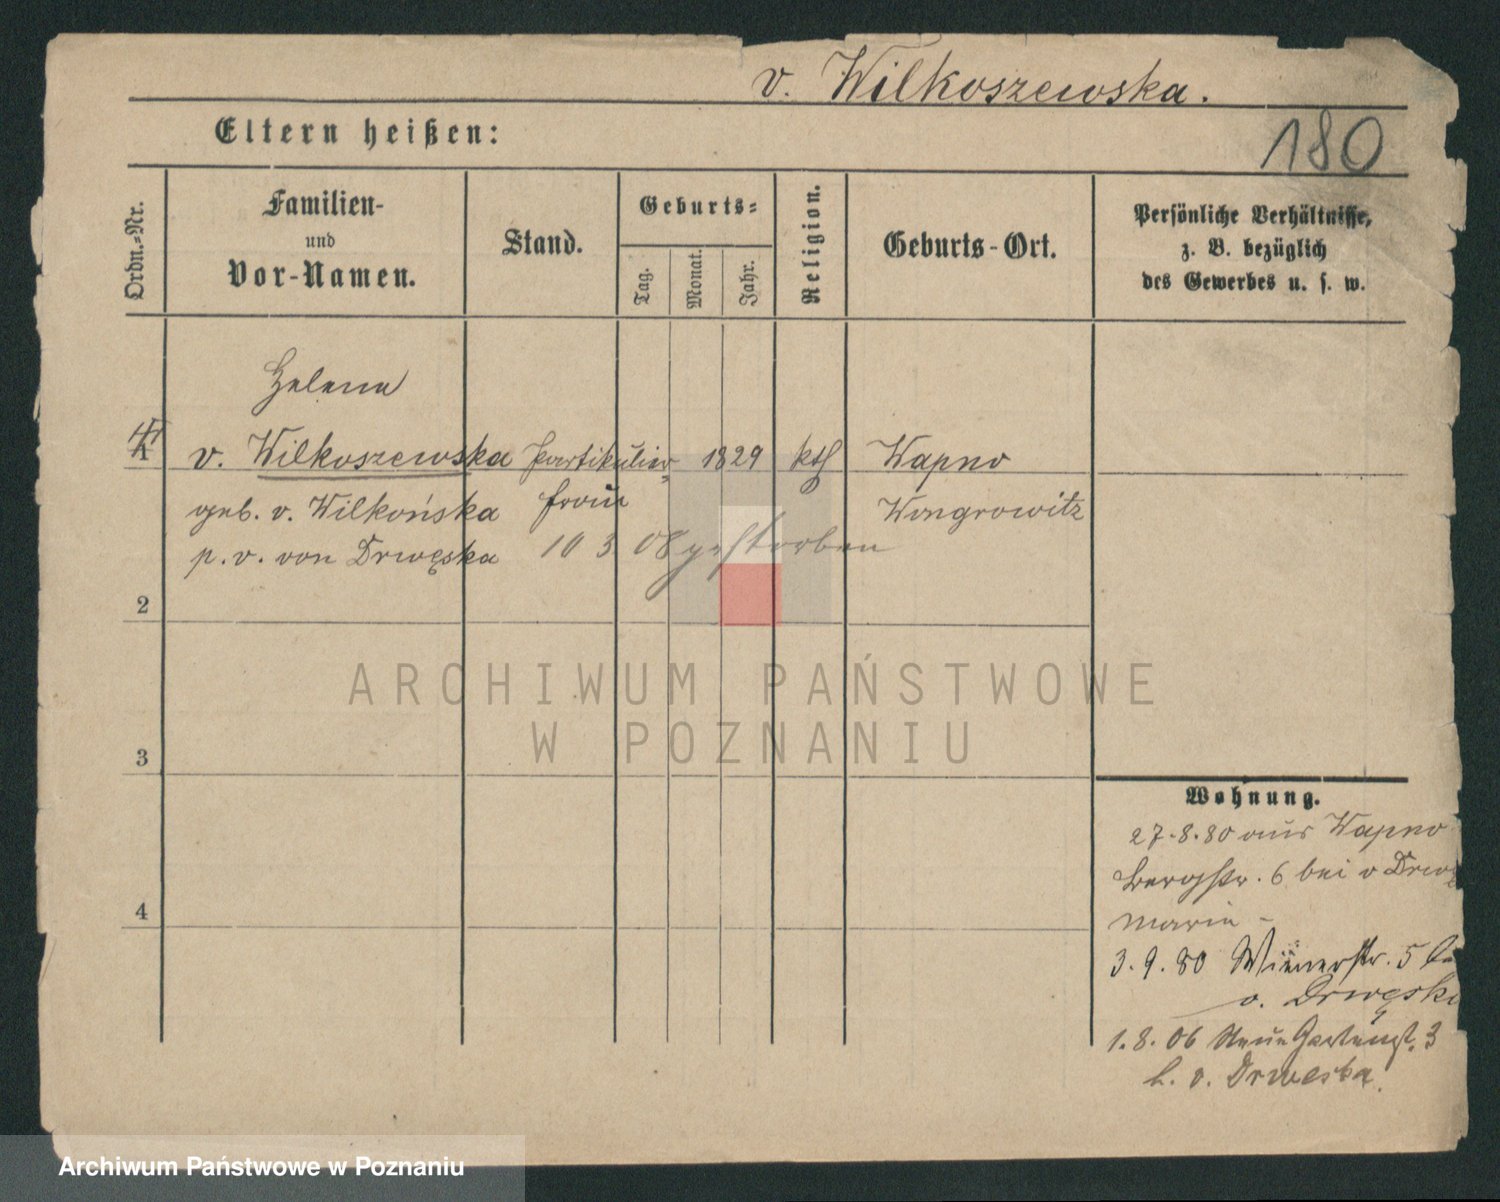 v. Wilkoszewska.
180
Eltern heißen:
Ordn.-Nr.
Familien-
und
Vor-Namen.
Stand.
Geburts-
Tag.
Monat.
Jahr.
Religion.
Geburts-Ort.
Persönliche Verhältnisse,
z. B. bezüglich
des Gewerbes u. s. w.
Helena
1 v. Wilkoszewska Partikulier 1829 kth Wapno
geb. v. Wilkońska frau Wongrowitz
p. v. von Drwęska 10 3 08 gestorben
2
ARCHIWUM PAŃSTWOWE
W POZNANIU
3
Wohnung.
27.8.80 aus Wapno
Bergstr. 6 bei v Drwę
Marie -
4
3.9.80 Wienerstr. 5
v. Drwęska
1.8.06 Neue Gartenst. 3
b. v. Drweska.
Archiwum Państwowe w Poznaniu